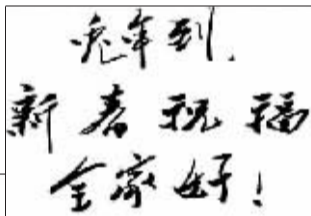 兔年到.
新春祝福
全家好!